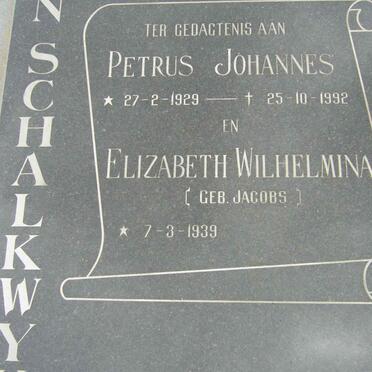 N SCHALKWY
TER GEDAGTENIS AAN
PETRUS JOHANNES
★ 27-2-1929 — † 25-10-1992
EN
ELIZABETH WILHELMINA
( GEB. JACOBS )
★ 7-3-1939